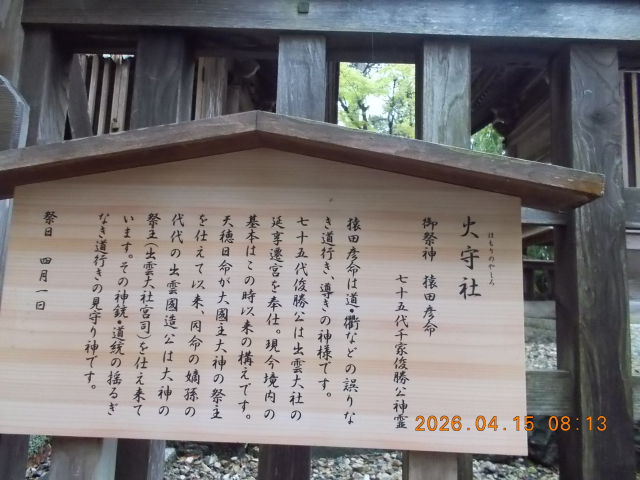 はもりのやしろ
火守社
御祭神　猿田彦命
七十五代千家俊勝公神霊
猿田彦命は道・衢などの誤りな
き道行き、導きの神様です。
七十五代俊勝公は出雲大社の
延享遷宮を奉仕。現今境内の
基本はこの時以来の構えです。
天穂日命が大國主大神の祭主
を仕えて以来、同命の嫡孫の
代代の出雲國造公は大神の
祭主(出雲大社宮司)を仕え来て
います。その神統・道統の揺るぎ
なき道行きの見守り神です。
祭日　四月一日
2026.04.15 08:13